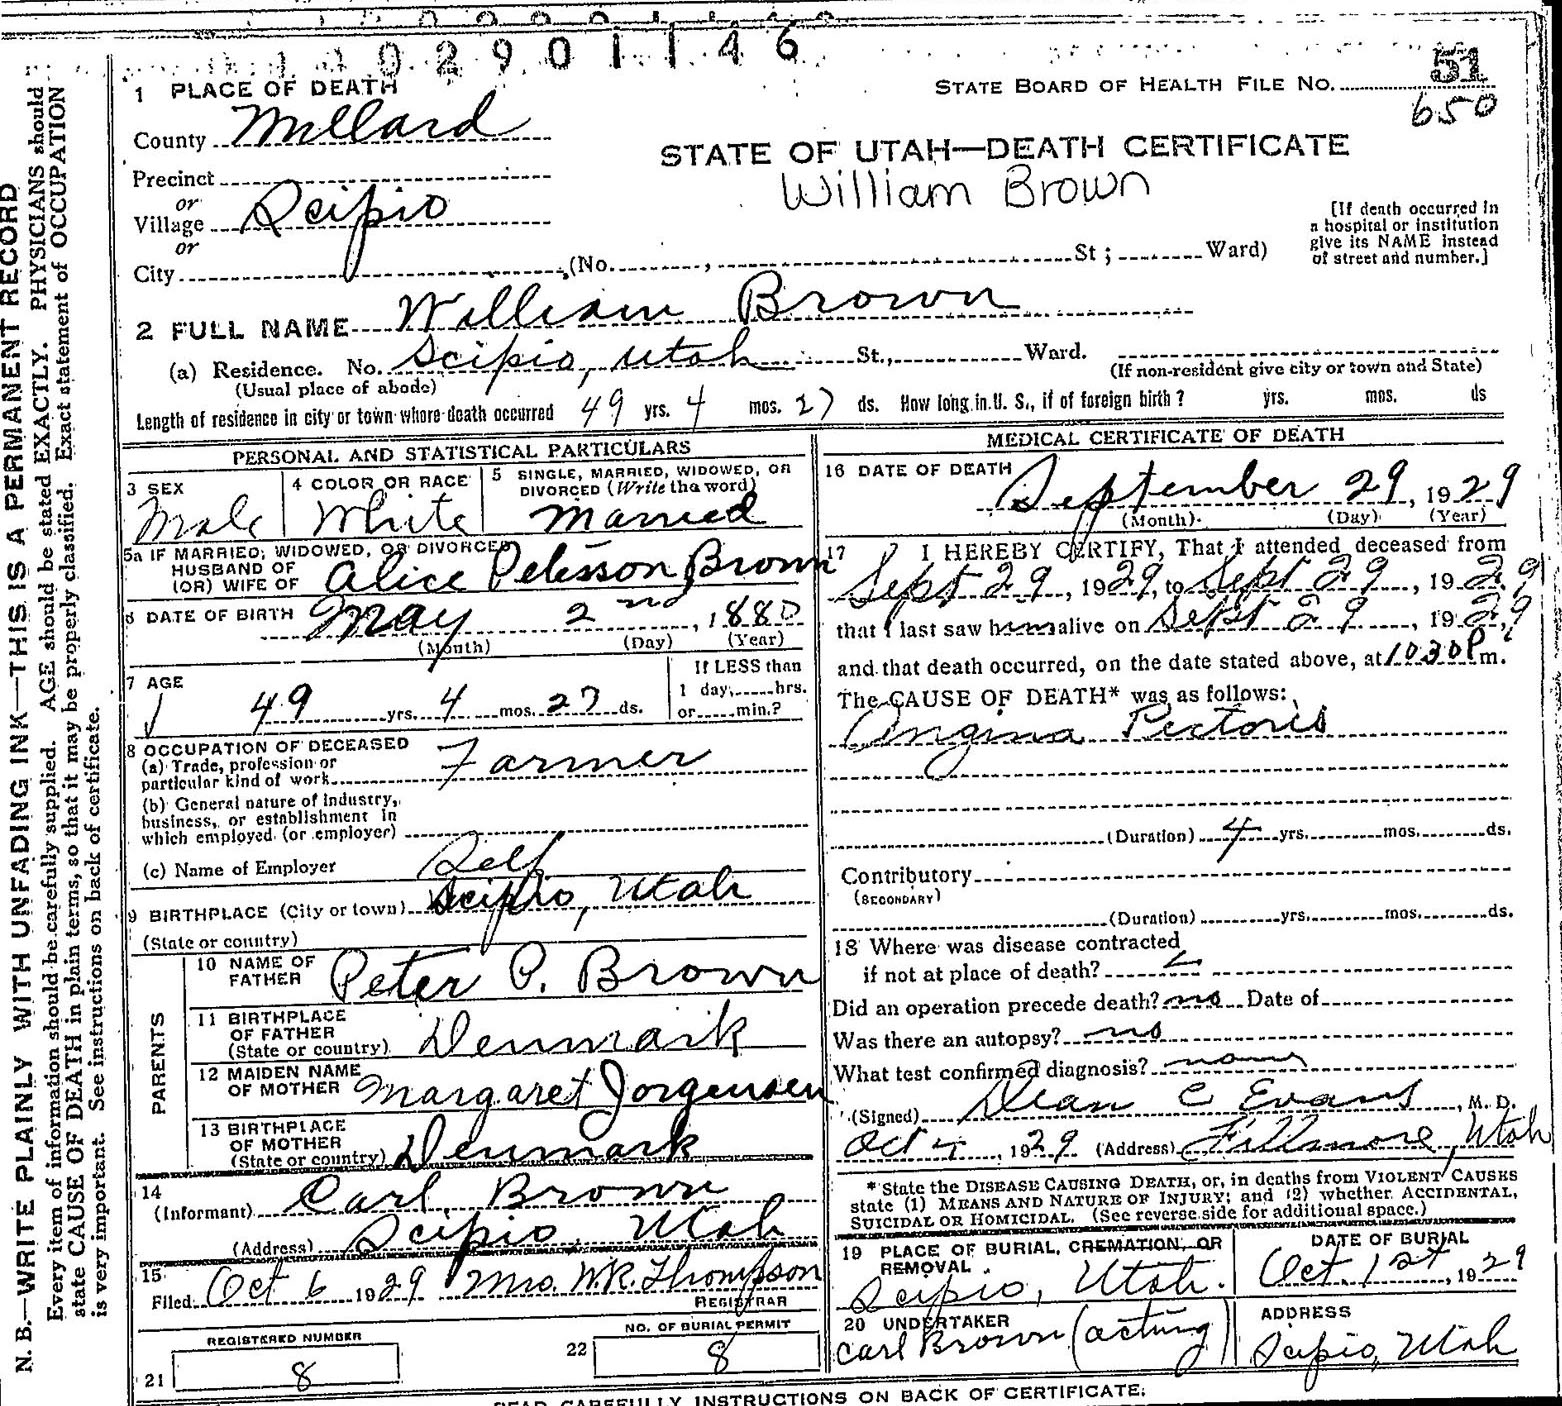 2901146
1 PLACE OF DEATH
STATE BOARD OF HEALTH FILE NO. 51
650
County Millard
STATE OF UTAH—DEATH CERTIFICATE
William Brown
Precinct
or
Village Scipio
or
City (No. , St ; Ward)
[If death occurred in
a hospital or institution
give its NAME instead
of street and number.]
2 FULL NAME William Brown
(a) Residence. No. Scipio, Utah St., Ward.
(Usual place of abode)
(If non-resident give city or town and State)
Length of residence in city or town where death occurred 49 yrs. 4 mos. 27 ds. How long in U. S., if of foreign birth? yrs. mos. ds
PERSONAL AND STATISTICAL PARTICULARS
3 SEX
Male
4 COLOR OR RACE
White
5 SINGLE, MARRIED, WIDOWED, OR
DIVORCED (Write the word)
Married
5a IF MARRIED, WIDOWED, OR DIVORCED
HUSBAND OF
(OR) WIFE OF Alice Petersson Brown
6 DATE OF BIRTH May 2nd, 1880
(Month) (Day) (Year)
7 AGE
49 yrs. 4 mos. 27 ds.
If LESS than
1 day, hrs.
or min.?
8 OCCUPATION OF DECEASED
(a) Trade, profession or
particular kind of work Farmer
(b) General nature of industry,
business, or establishment in
which employed (or employer)
(c) Name of Employer Self
9 BIRTHPLACE (City or town) Scipio, Utah
(State or country)
PARENTS
10 NAME OF
FATHER Peter P. Brown
11 BIRTHPLACE
OF FATHER
(State or country) Denmark
12 MAIDEN NAME
OF MOTHER Margaret Jorgensen
13 BIRTHPLACE
OF MOTHER
(State or country) Denmark
14
(Informant) Carl Brown
(Address) Scipio, Utah
15
Filed Oct 6 1929 Mrs. W.R. Thompson
REGISTRAR
REGISTERED NUMBER
21 8
NO. OF BURIAL PERMIT
22 8
MEDICAL CERTIFICATE OF DEATH
16 DATE OF DEATH
September 29, 1929
(Month) (Day) (Year)
17 I HEREBY CERTIFY, That I attended deceased from
Sept 29, 1929, to Sept 29, 1929
that I last saw him alive on Sept 29, 1929,
and that death occurred, on the date stated above, at 1030 P m.
The CAUSE OF DEATH* was as follows:
Angina Pectoris
(Duration) 4 yrs. mos. ds.
Contributory
(SECONDARY)
(Duration) yrs. mos. ds.
18 Where was disease contracted
if not at place of death?
Did an operation precede death? no Date of
Was there an autopsy? no
What test confirmed diagnosis? none
(Signed) Dean C Evans, M. D.
Oct 4, 1929 (Address) Fillmore, Utah
* State the DISEASE CAUSING DEATH, or, in deaths from VIOLENT CAUSES
state (1) MEANS AND NATURE OF INJURY; and (2) whether ACCIDENTAL,
SUICIDAL OR HOMICIDAL. (See reverse side for additional space.)
19 PLACE OF BURIAL, CREMATION, OR
REMOVAL
Scipio, Utah.
DATE OF BURIAL
Oct. 1st, 1929
20 UNDERTAKER
Carl Brown (acting)
ADDRESS
Scipio, Utah
READ CAREFULLY INSTRUCTIONS ON BACK OF CERTIFICATE.
N. B.—WRITE PLAINLY WITH UNFADING INK—THIS IS A PERMANENT RECORD
Every item of information should be carefully supplied. AGE should be stated EXACTLY. PHYSICIANS should
state CAUSE OF DEATH in plain terms, so that it may be properly classified. Exact statement of OCCUPATION
is very important. See instructions on back of certificate.